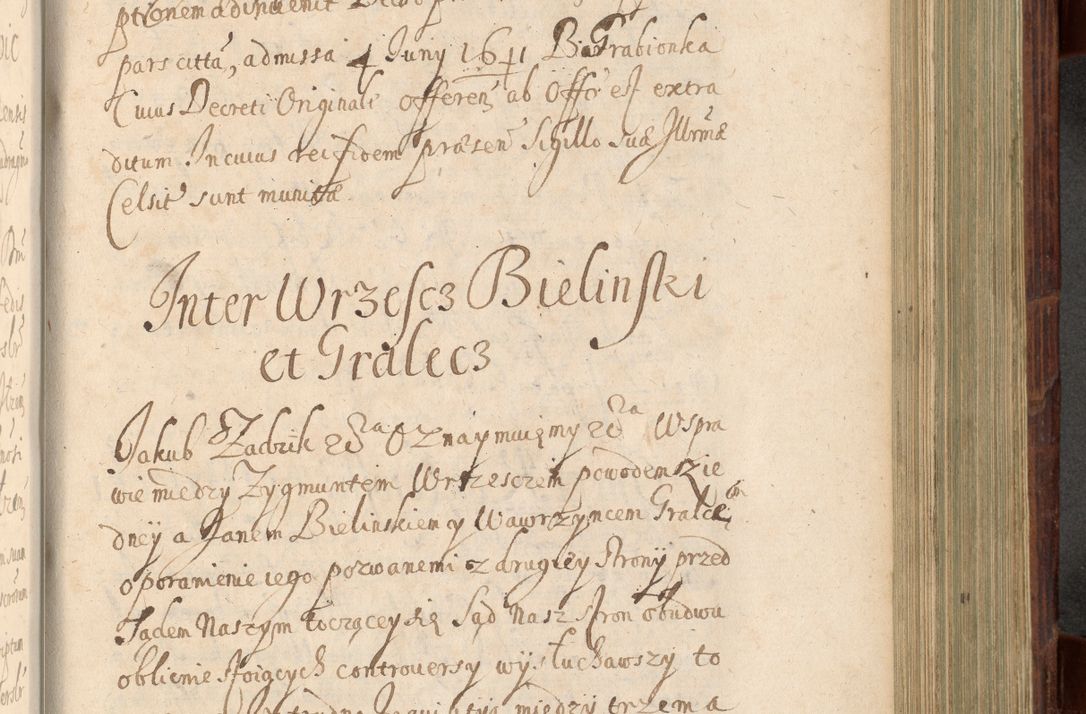 pars citta, admissa 4 Juny 1641 B. Grabionka
Cuius Decreti Originale offeren ab Offo est extra
ditum In cuius rei fidem præsen Sigillo Suæ Illrmæ
Celsit sunt munitæ
Inter Wrzescz Bielinski
et Gralecz
Jakub Zadzik &c Oznaymuięmy &c W spra
wie miedzy Zygmuntem Wrzesczem powodem z ie
dney a Janem Bielinskiem y Wawrzyncem Gralcem
o poranienie iego pozwanemi z drugiey strony przed
Sądem Naszym toczącey się Sąd Nasz stron obudwu
oblicnie stoiących controversy wysłuchawszy to
miedzy trzema